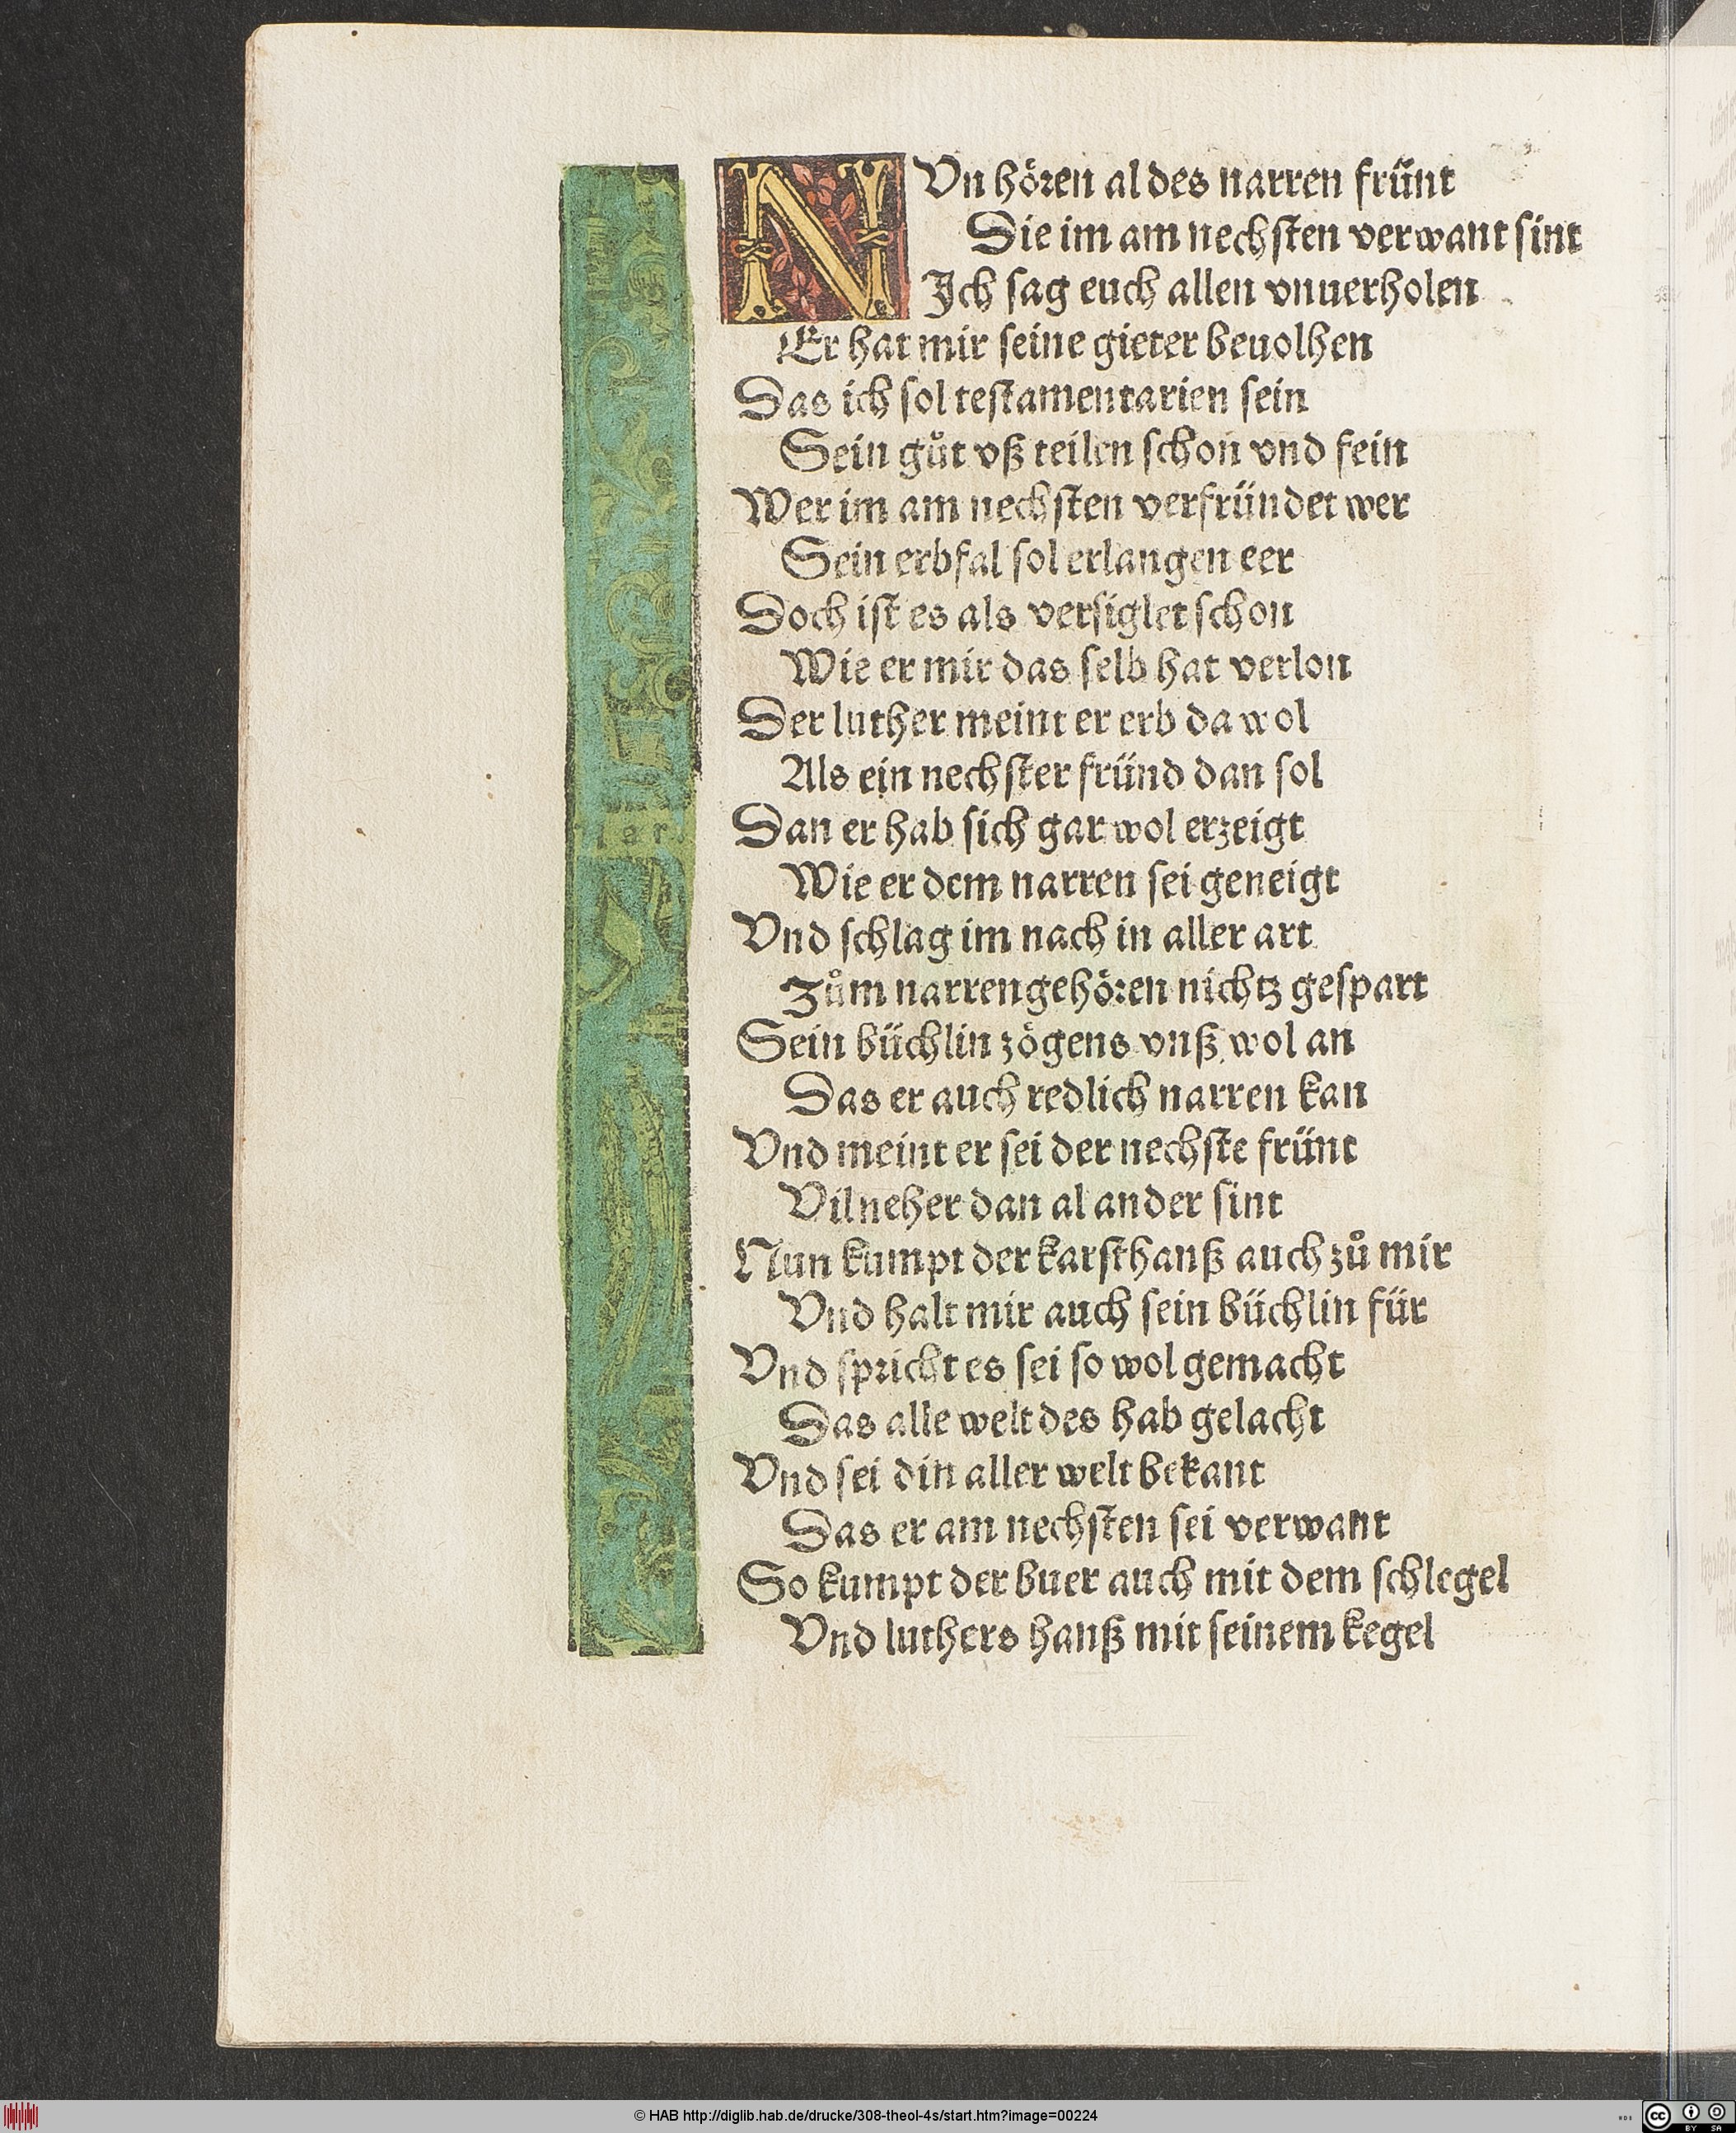 NVn hören al des narren frünt
Die im am nechsten verwant sint
Ich sag euch allen vnuerholen
Er hat mir seine gieter beuolhen
Das ich sol testamentarien sein
Sein gůt vß teilen schon vnd fein
Wer im am nechsten verfründet wer
Sein erbfal sol erlangen eer
Doch ist es als versiglet schon
Wie er mir das selb hat verlon
Der luther meint er erb da wol
Als ein nechster fründ dan sol
Dan er hab sich gar wol erzeigt
Wie er dem narren sei geneigt
Vnd schlag im nach in aller art
Zům narren gehören nichtz gespart
Sein büchlin zögens vnß wol an
Das er auch redlich narren kan
Vnd meint er sei der nechste frünt
Vil neher dan al ander sint
Nun kumpt der karsthanß auch zů mir
Vnd halt mir auch sein büchlin für
Vnd spricht es sei so wol gemacht
Das alle welt des hab gelacht
Vnd sei din aller welt bekant
Das er am nechsten sei verwant
So kumpt der buer auch mit dem schlegel
Vnd luthers hanß mit seinem kegel
© HAB http://diglib.hab.de/drucke/308-theol-4s/start.htm?image=00224
cc BY SA